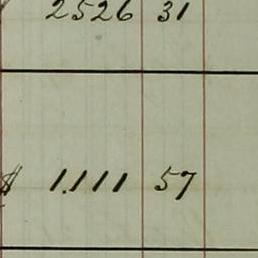 2526 31
$ 1.111 57